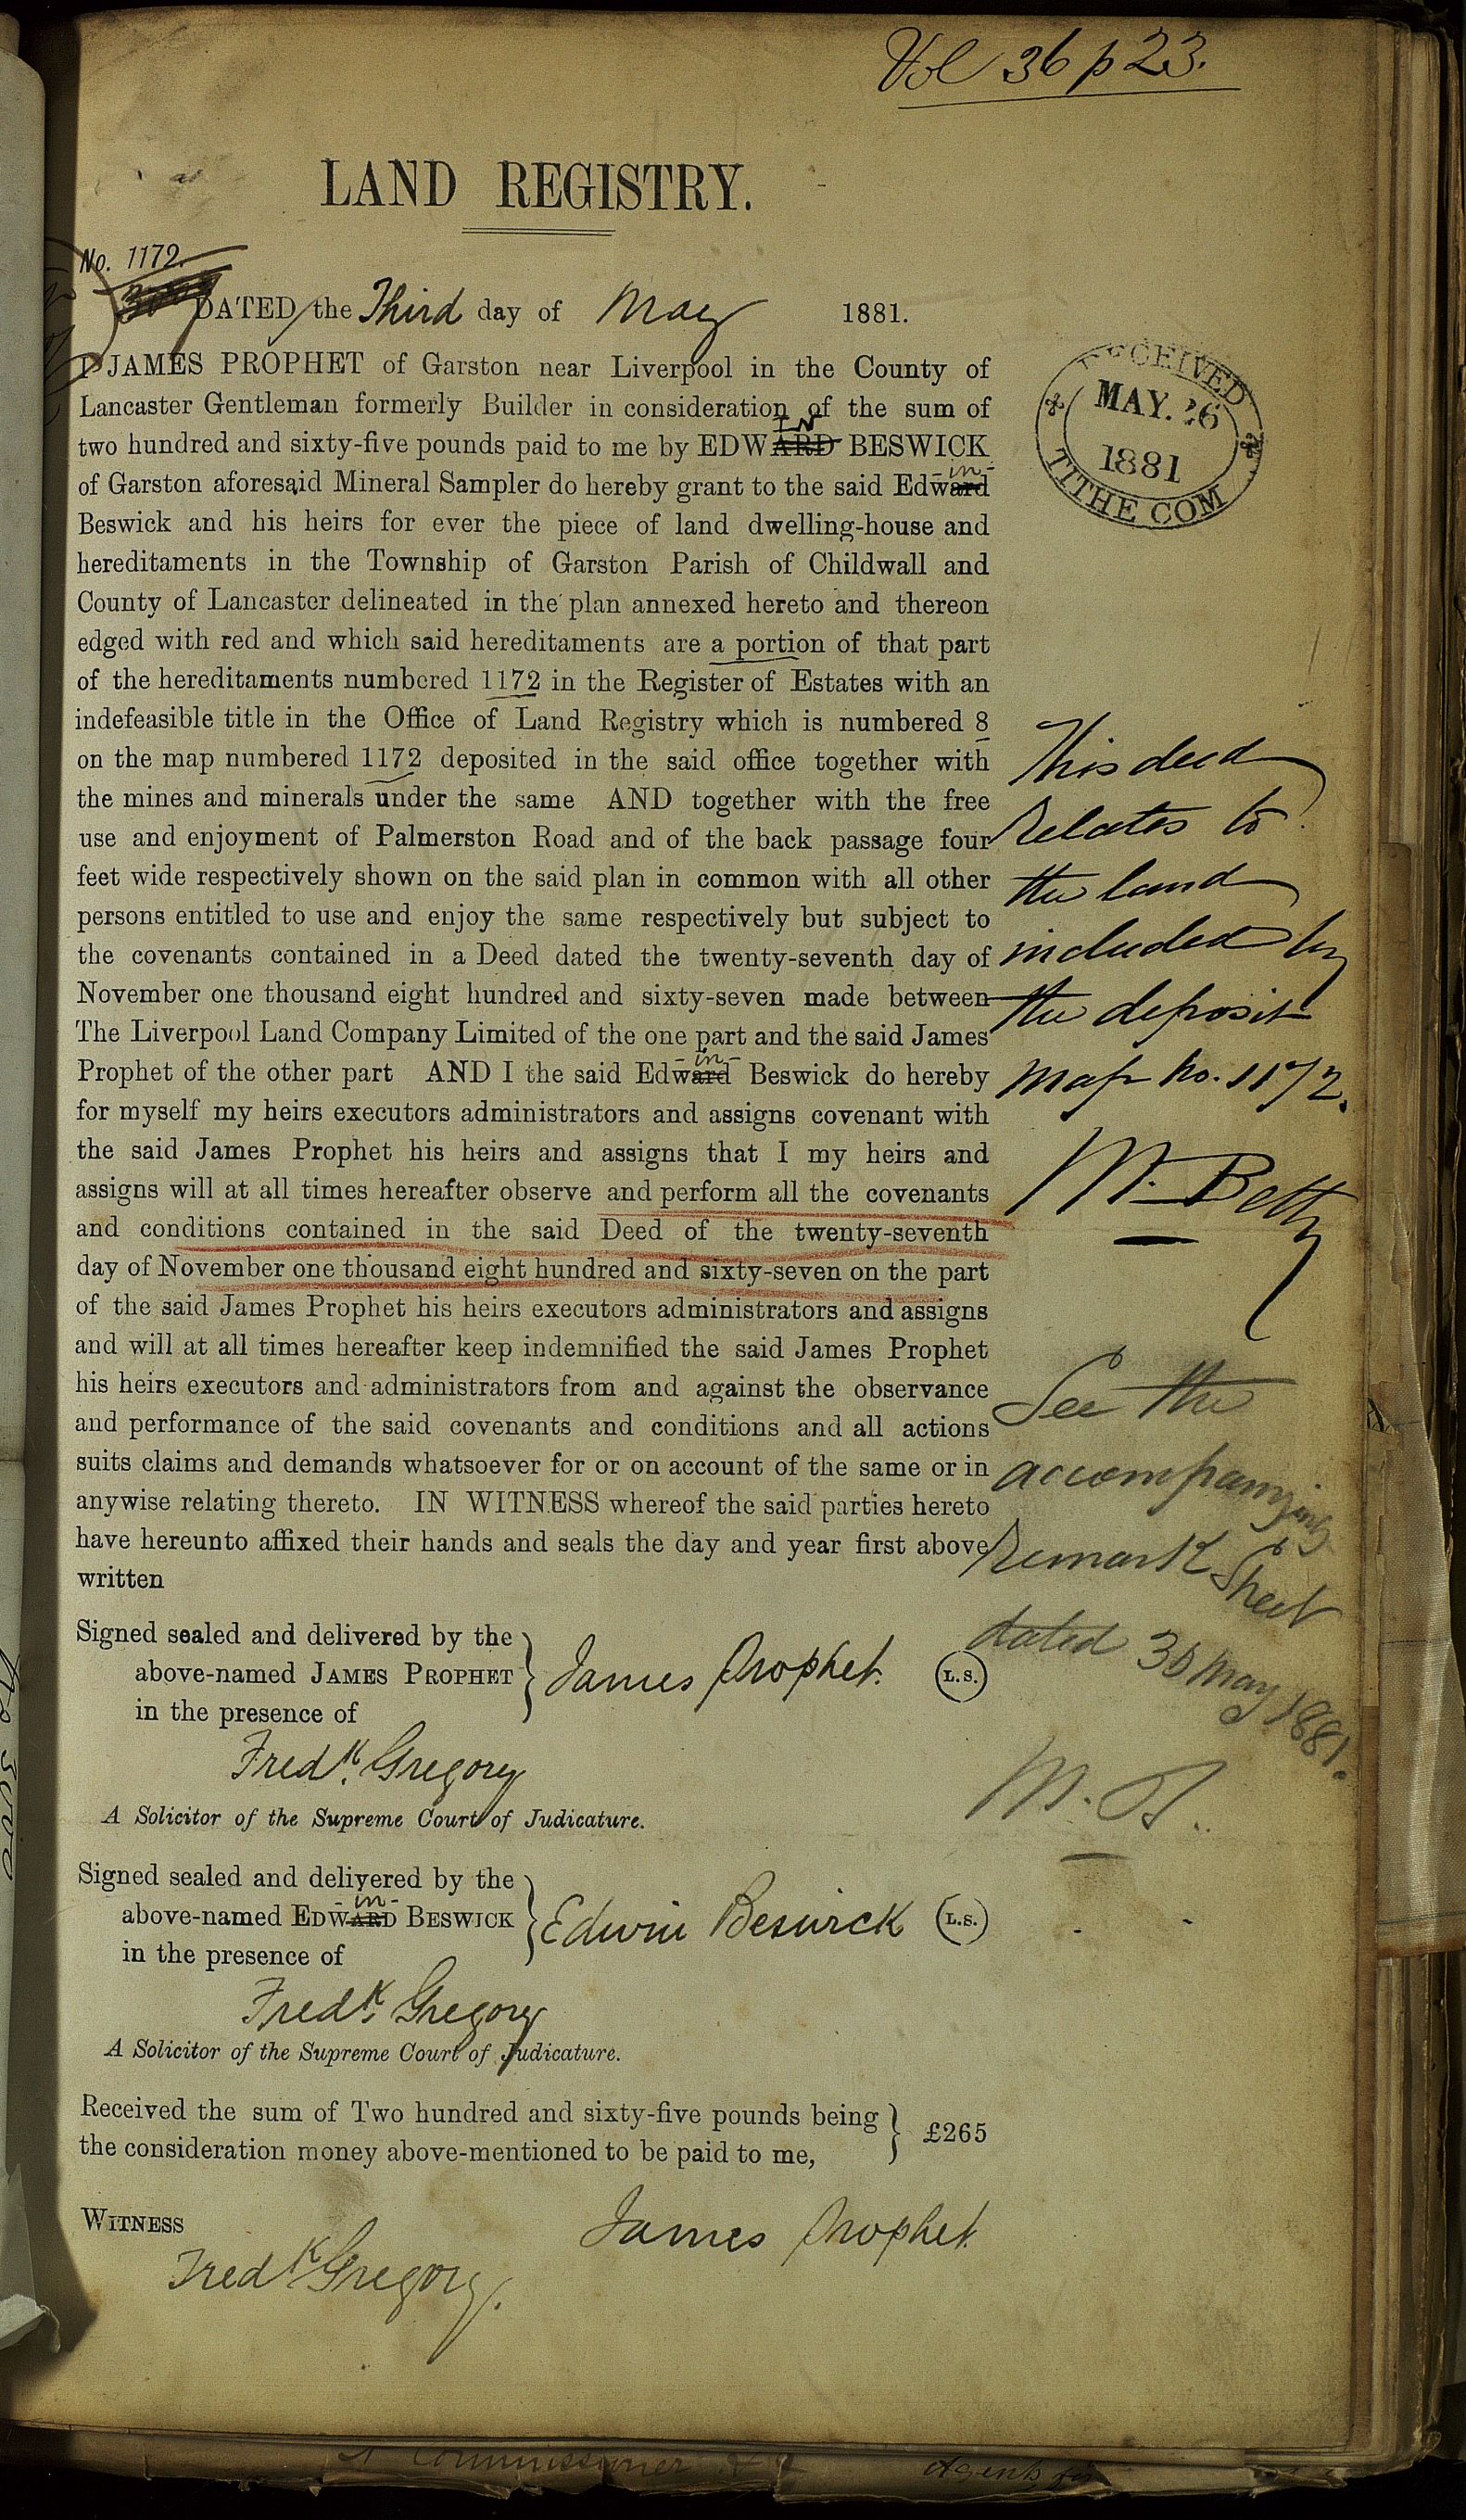 Vol 36 p 23.
LAND REGISTRY.
No. 1172.
DATED the Third day of May 1881.
I JAMES PROPHET of Garston near Liverpool in the County of
Lancaster Gentleman formerly Builder in consideration of the sum of
IN
two hundred and sixty-five pounds paid to me by EDWARD BESWICK
-in-
of Garston aforesaid Mineral Sampler do hereby grant to the said Edward
Beswick and his heirs for ever the piece of land dwelling-house and
hereditaments in the Township of Garston Parish of Childwall and
County of Lancaster delineated in the plan annexed hereto and thereon
edged with red and which said hereditaments are a portion of that part
of the hereditaments numbered 1172 in the Register of Estates with an
indefeasible title in the Office of Land Registry which is numbered 8
on the map numbered 1172 deposited in the said office together with
the mines and minerals under the same AND together with the free
use and enjoyment of Palmerston Road and of the back passage four
feet wide respectively shown on the said plan in common with all other
persons entitled to use and enjoy the same respectively but subject to
the covenants contained in a Deed dated the twenty-seventh day of
November one thousand eight hundred and sixty-seven made between
The Liverpool Land Company Limited of the one part and the said James
-in-
Prophet of the other part AND I the said Edward Beswick do hereby
for myself my heirs executors administrators and assigns covenant with
the said James Prophet his heirs and assigns that I my heirs and
assigns will at all times hereafter observe and perform all the covenants
and conditions contained in the said Deed of the twenty-seventh
day of November one thousand eight hundred and sixty-seven on the part
of the said James Prophet his heirs executors administrators and assigns
and will at all times hereafter keep indemnified the said James Prophet
his heirs executors and administrators from and against the observance
and performance of the said covenants and conditions and all actions
suits claims and demands whatsoever for or on account of the same or in
anywise relating thereto. IN WITNESS whereof the said parties hereto
have hereunto affixed their hands and seals the day and year first above
written
Signed sealed and delivered by the
above-named JAMES PROPHET
in the presence of
James Prophet. L.S.
Fredk. Gregory
A Solicitor of the Supreme Court of Judicature.
Signed sealed and delivered by the
-in-
above-named EDWARD BESWICK
in the presence of
Edwin Beswick L.S.
Fredk. Gregory
A Solicitor of the Supreme Court of Judicature.
Received the sum of Two hundred and sixty-five pounds being
the consideration money above-mentioned to be paid to me,
£265
WITNESS
James Prophet.
Fredk Gregory.
RECEIVED
MAY. 26
1881
TITHE COM
This deed
relates to
the land
included by
the deposit
map No. 1172.
M. Betty
See the
accompanying
Remark Sheet
dated 30 May 1881.
M. B.
Commissioner
Agents for